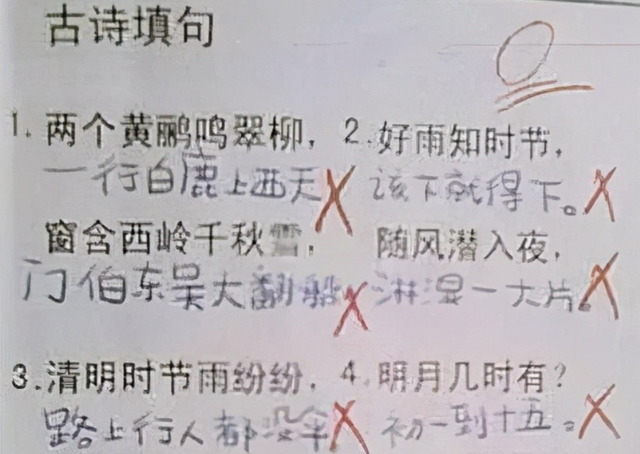 古诗填句
1. 两个黄鹂鸣翠柳，
一行白鹿上西天
窗含西岭千秋雪，
门伯东吴大翻船。
2. 好雨知时节，
该下就得下。
随风潜入夜，
淋湿一大片。
3. 清明时节雨纷纷，
路上行人都没伞
4. 明月几时有？
初一到十五。